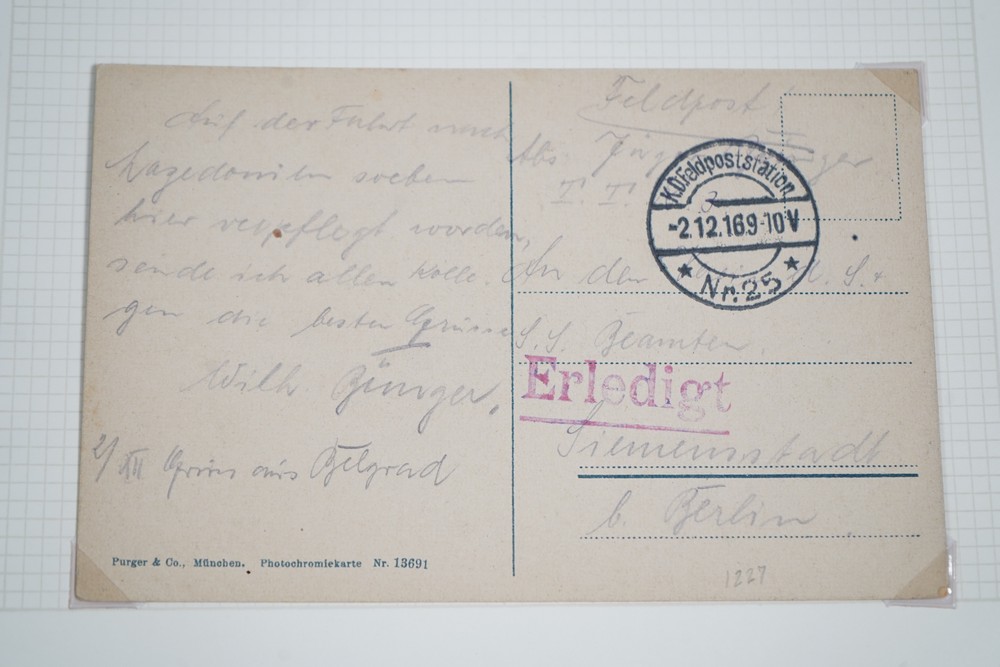 Auf der Fahrt nach
Mazedonien soeben
hier verpflegt worden,
sende ich allen Kolle-
gen die besten Grüsse
Wilh. Bürger.
2/XII Gruss aus Belgrad
Purger & Co., München. Photochromiekarte Nr. 13691
Feldpost
Abs.
I. I.
K.D.Feldpoststation
-2.12.16.9-10V
Nr. 25
An den
S. S. Beamten
Erledigt
Siemensstadt
b. Berlin
1227